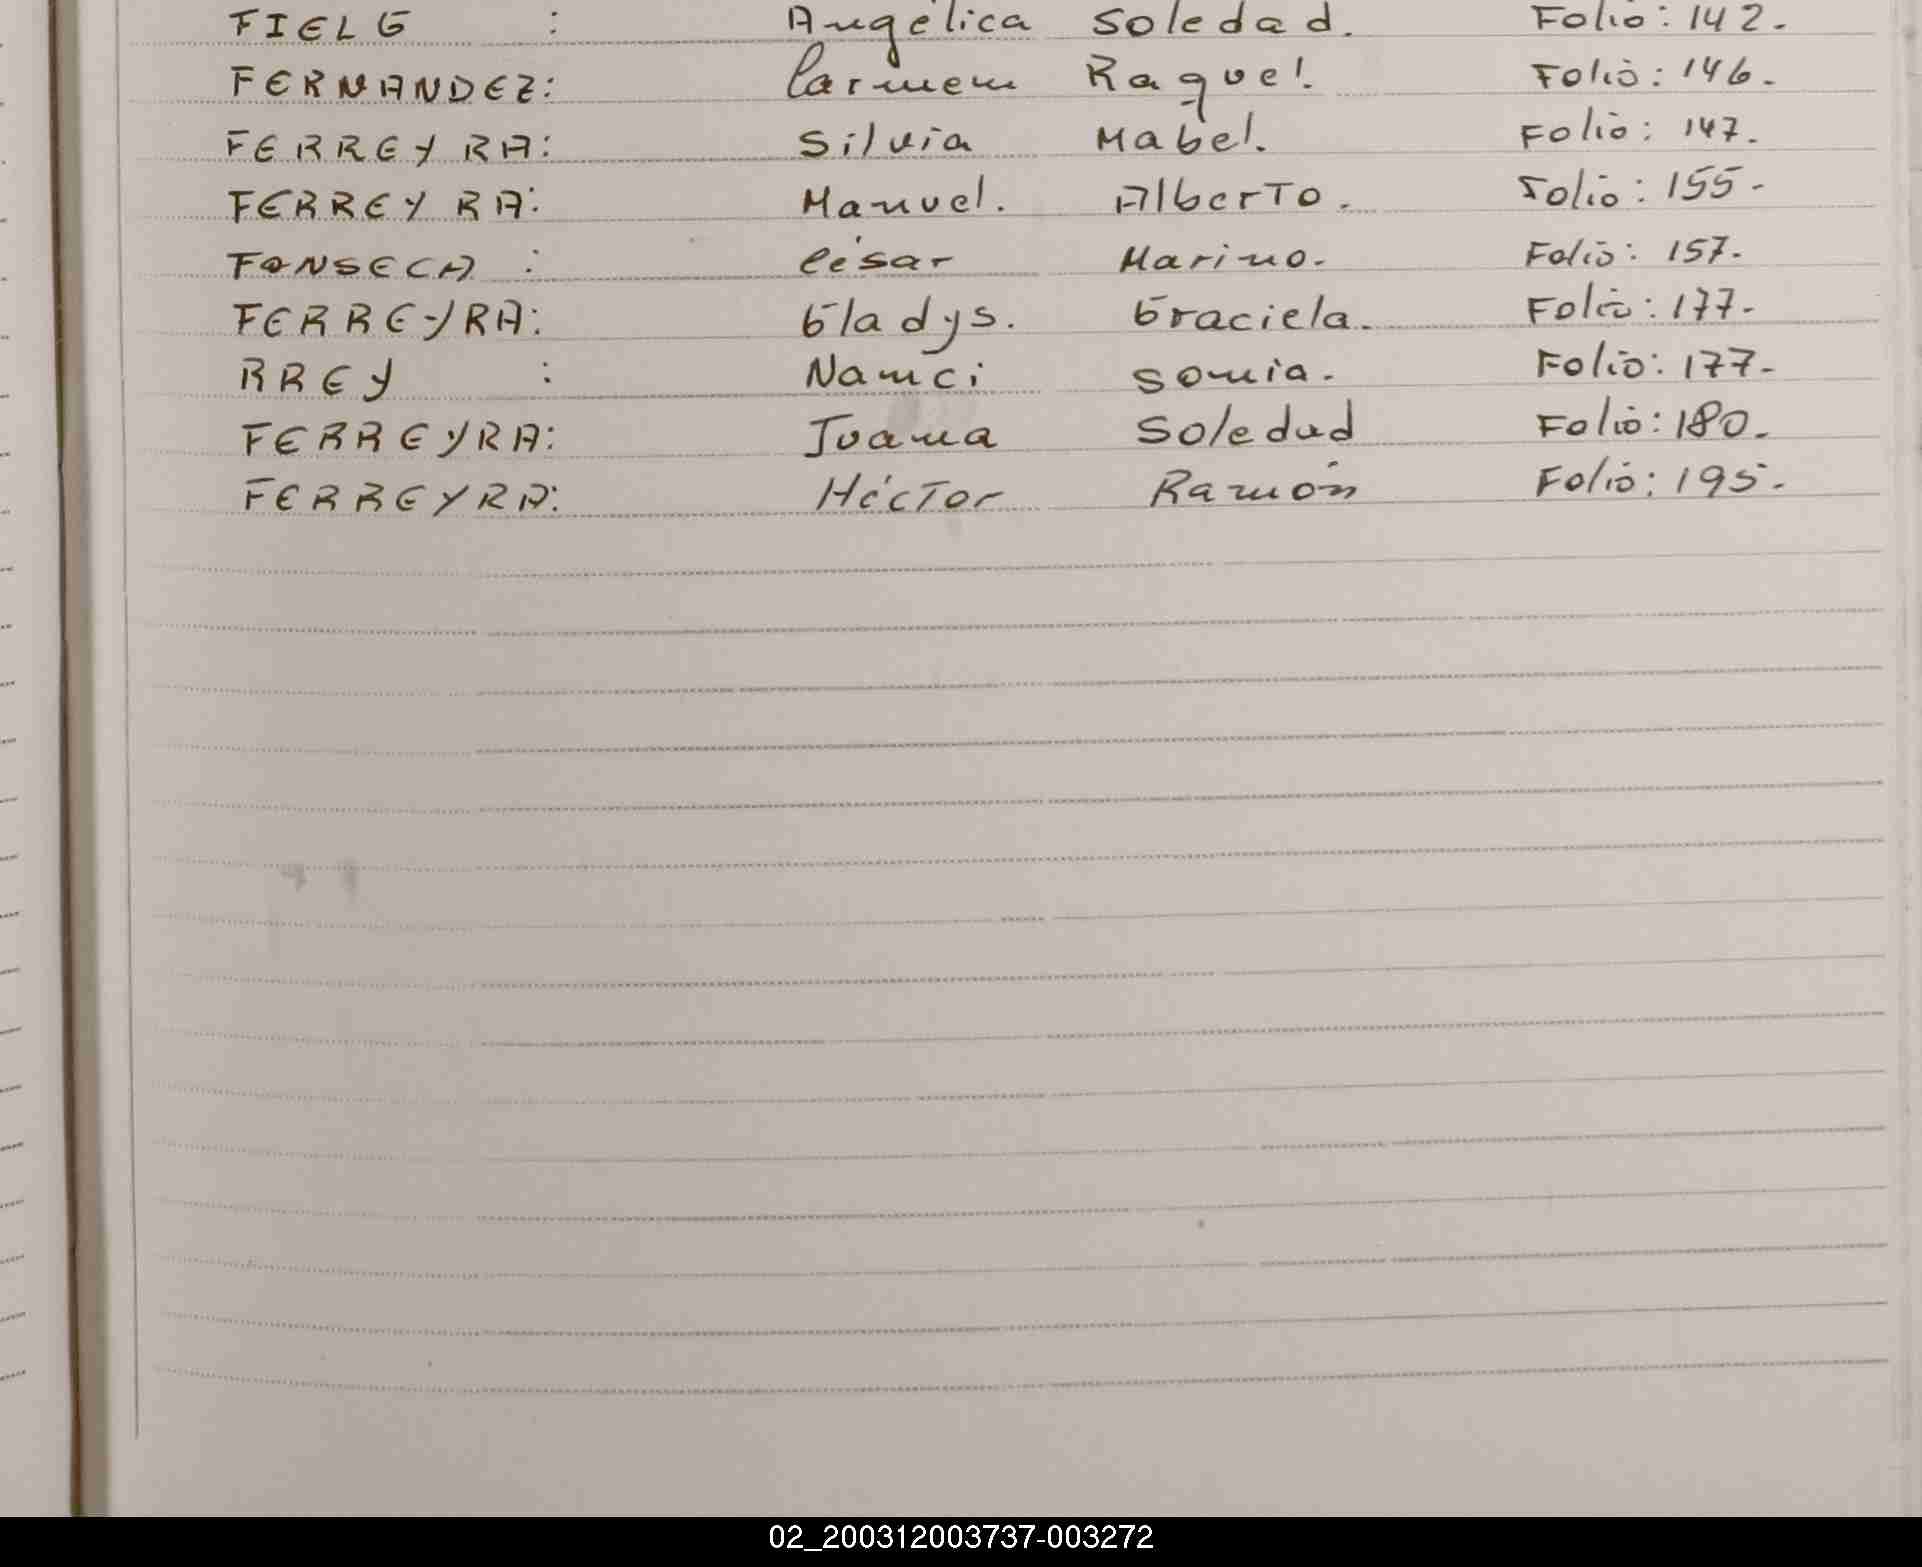 FIELG : Angélica Soledad. Folio: 142.-
FERNANDEZ: Carmen Raquel. Folio: 146.-
FERREYRA: Silvia Mabel. Folio: 147.-
FERREYRA: Manuel. Alberto. Folio: 155-
FONSECA : César Marino. Folio: 157.-
FERREYRA: Gladys. Graciela. Folio: 177.-
RREY : Nanci Sonia. Folio: 177.-
FERREYRA: Juana Soledad Folio: 180.-
FERREYRA: Héctor Ramón Folio: 195.-
02_200312003737-003272